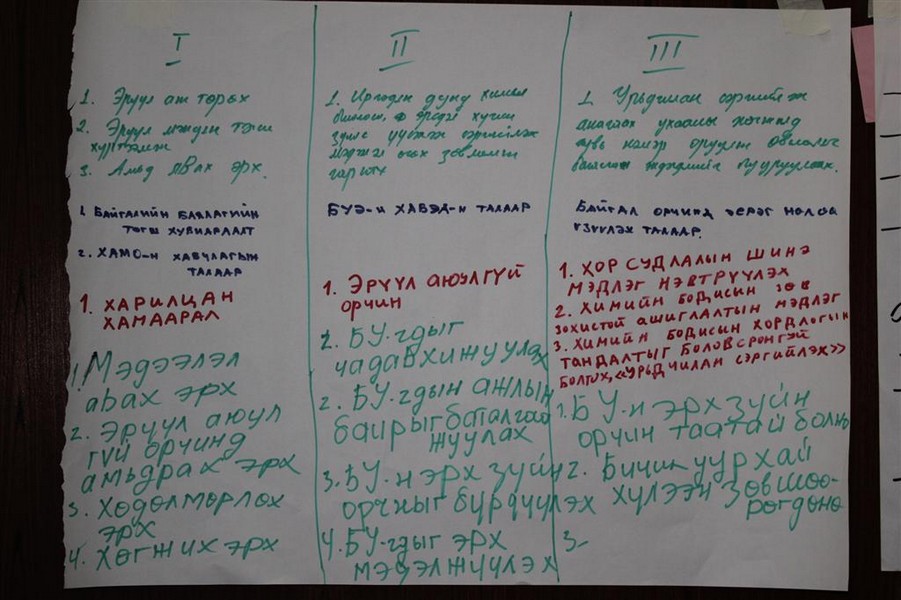 I
1. Эрүүл аж төрөх
2. Эрүүл мэндийн тэгш
хүртээмж
3. Амьд явах эрх.
1. Байгалийн баялагийн
тэгш хувиарлалт
2. ХАМО-н хавчлагын
талаар
1. Харилцан
хамаарал
1. Мэдээлэл
авах эрх
2. Эрүүл аюул
гүй орчинд
амьдрах эрх
3. Хөдөлмөрлөх
эрх
4. Хөгжих эрх
II
1. Иргэдэн дунд химийн
бодисын эрсдэл хүчин
зүйлс уубэлж сэргийлэх
мэдлэг олгох зөвлөмж
гаргах
БУЭ-н ХАВЭД-н талаар
1. Эрүүл аюулгүй
орчин
2. БУ-чдыг
чадавхижуулах
2. БУ-чдын ажлын
байрыг баталгаа
жуулах
3. БУ-н эрх зүйн
орчныг бүрдүүлэх
4. БУ-чдыг эрх
мэдэлжүүлэх
III
1. Урьдчилан сэргийлэх
анагаах ухааны хөгжилд
хувь нэмэр оруулж
бууруулах.
Байгал орчинд эерэг нөлөө
үзүүлэх талаар.
1. Хор судлалын шинэ
мэдлэг нэвтрүүлэх
2. Химийн бодисын зөв
зохистой ашиглалтын мэдлэг
3. Химийн бодисын хордлогын
тандалтыг боловсронгүй
болгох, «урьдчилан сэргийлэх»
1. БУ-н эрх зүйн
орчин таатай болно
2. Бичил уурхай
хүлээн зөвшөө-
рөгдөнө
3-